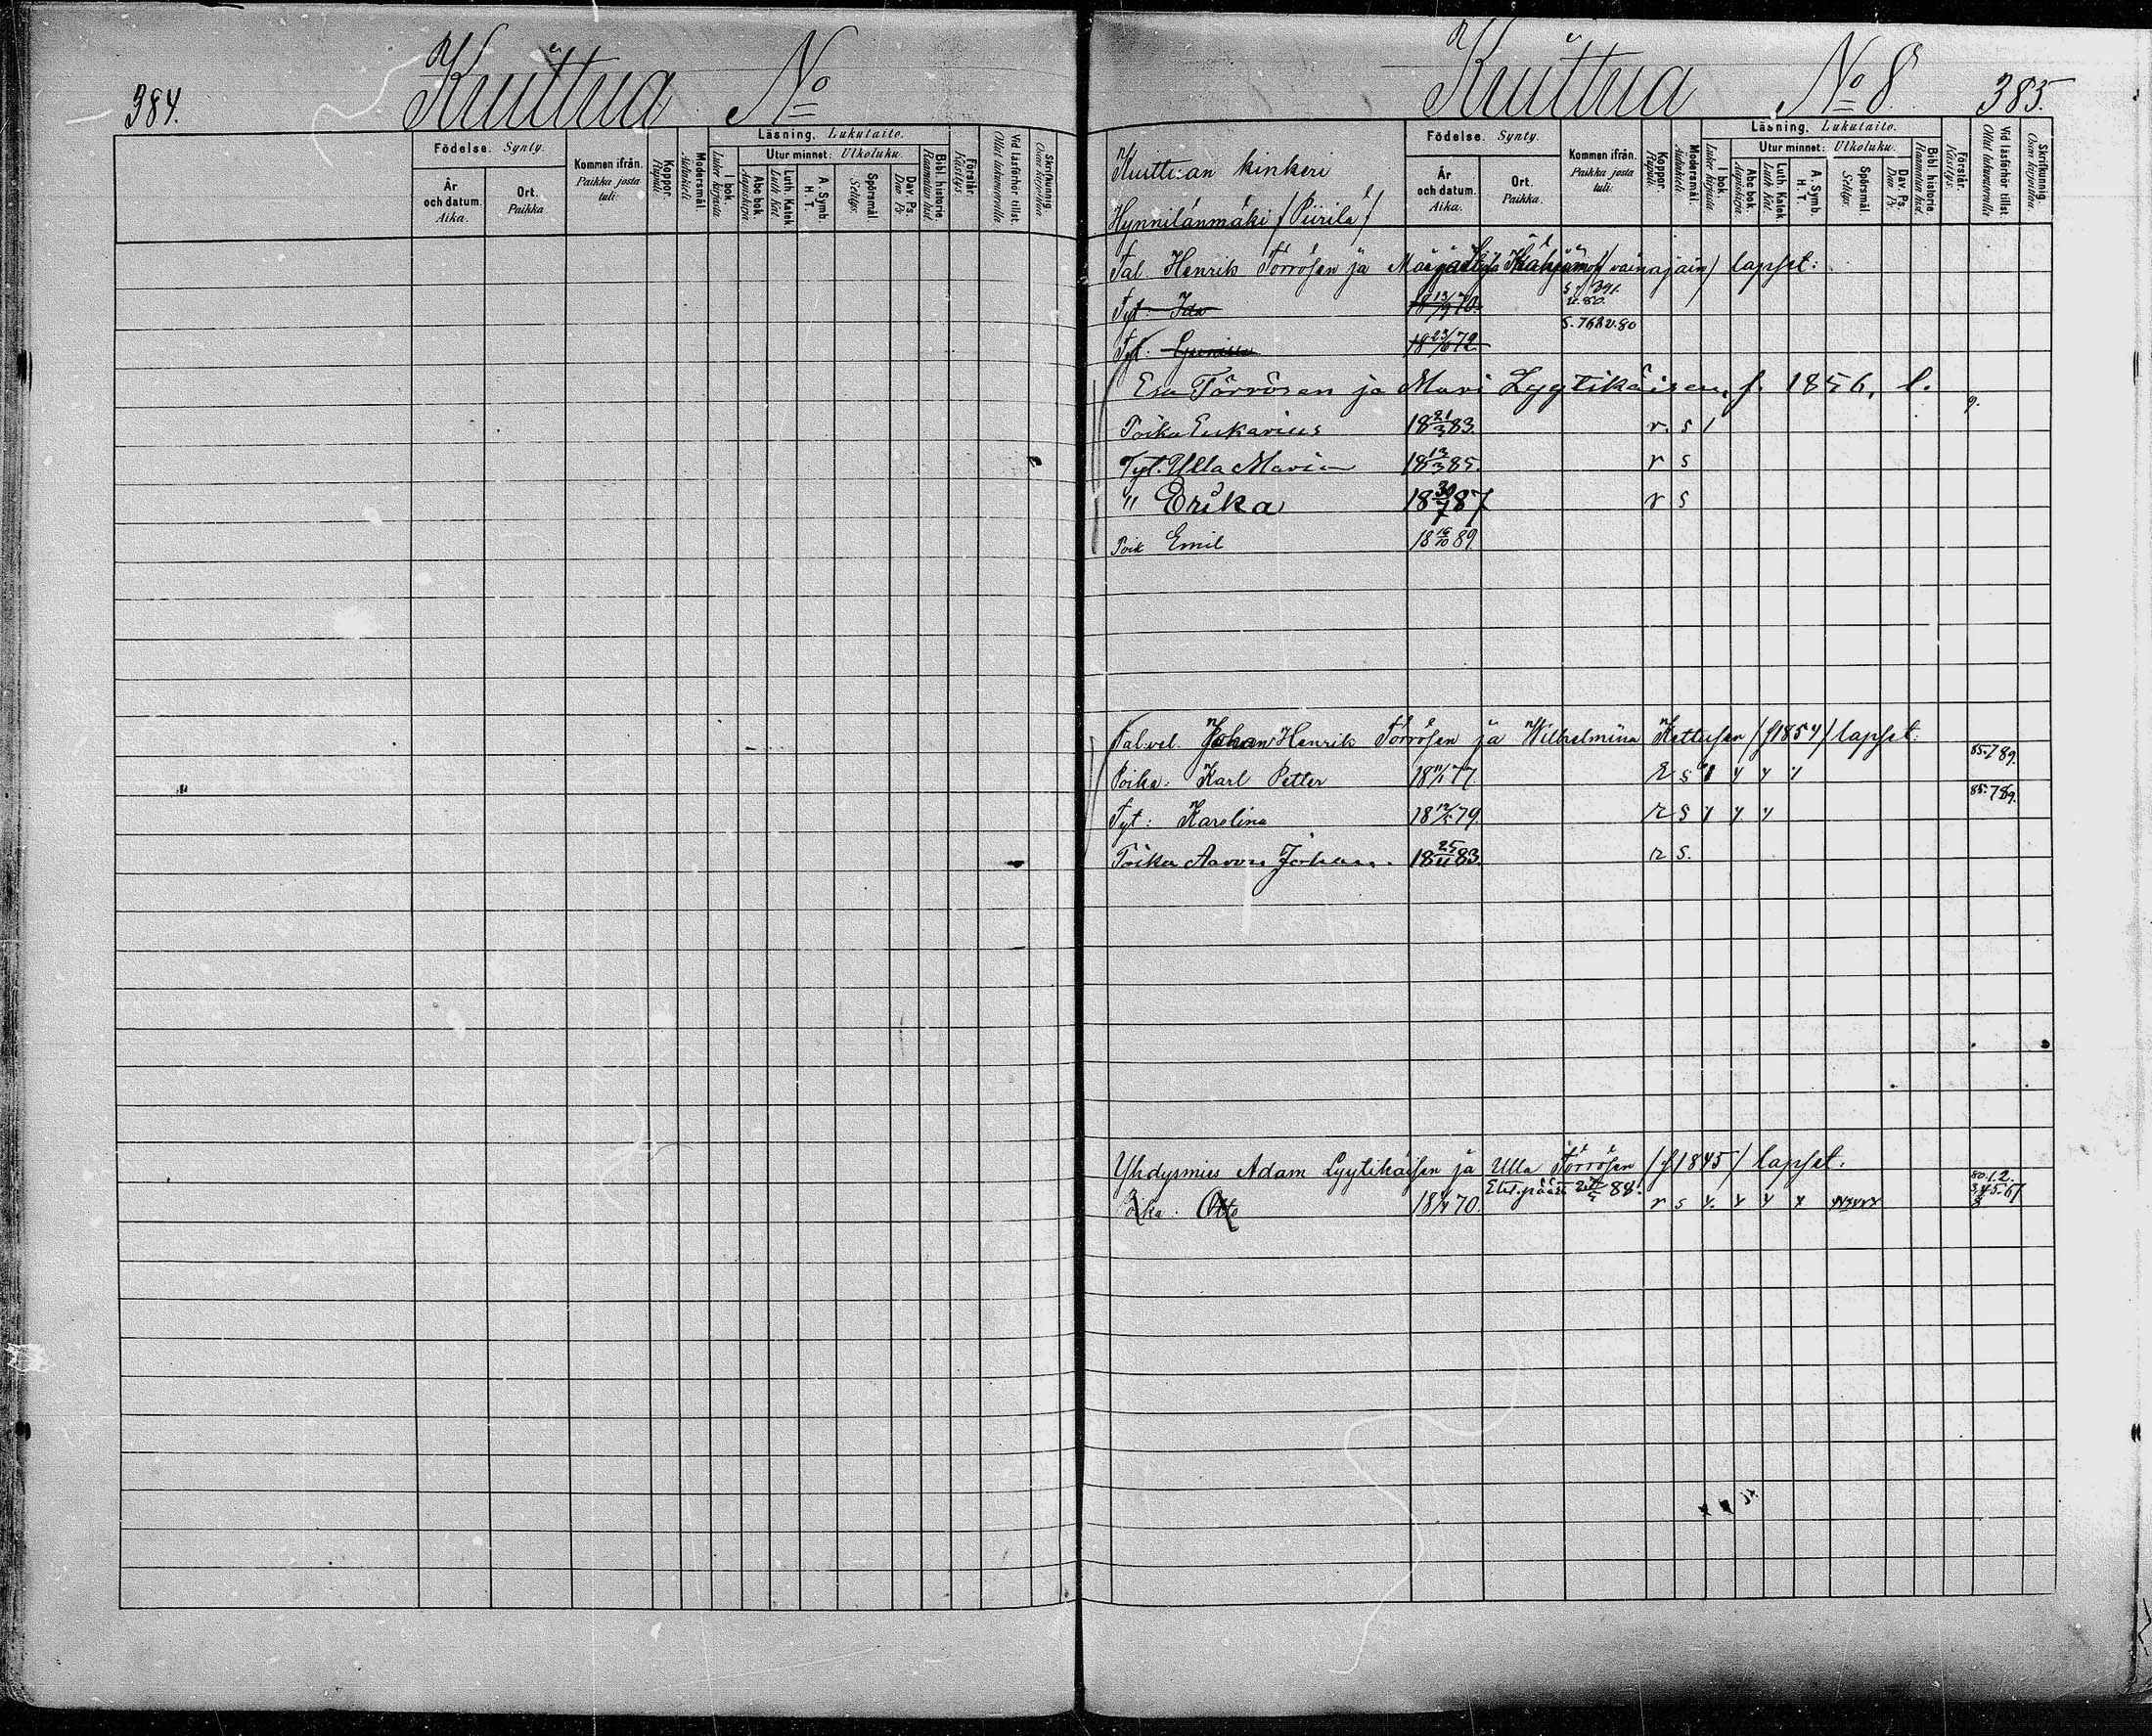 384.
Kuittua No
Födelse. Synty.
År och datum. Aika.
Ort. Paikka
Kommen ifrån. Paikka josta tuli:
Koppor. Rupuli.
Modersmål. Äidinkieli.
Läsning. Lukutaito.
I bok. Lukee kirjasta.
Utur minnet: Ulkoluku.
Abc bok. Aapiskirja.
Luth. Katek. Luth. Kat.
A. Symb. H. T.
Spörsmål. Selitys.
Dav. Ps. Dav. Ps.
Bibl. historie. Raamatun hist.
Förstår. Käsitys.
Vid läsförhör tillst. Ollut lukumerolla
Skrifkunnig. Osaa kirjoittaa
Kuittua No 8 385.
Kuittuan kinkeri
Hynnilänmäki / Piirilä /
Födelse. Synty.
År och datum. Aika.
Ort. Paikka.
Kommen ifrån. Paikka josta tuli:
Koppor. Rupuli.
Modersmål. Äidinkieli.
Läsning. Lukutaito.
I bok. Lukee kirjasta.
Utur minnet: Ulkoluku.
Abc bok. Aapiskirja.
Luth. Katek. Luth. Kat.
A. Symb. H. T.
Spörsmål. Selitys.
Dav. Ps. Dav. Ps.
Bibl. historie. Raamatun hist.
Förstår. Käsitys.
Vid läsförhör tillst. Ollut lukumerolla
Skrifkunnig. Osaa kirjoittaa.
Tal. Henrik Törrösen ja lapset:
Tyt. Ida 18 13/9 70. S. 391. v. 80.
Tyt. 18 23/10 72 S. 762 v. 80
Esa Törrösen ja Mari Lyytikäisen, f. 1856, l.
Poika Eukarius 18 21/3 83. r. s / 9.
Tyt. Ulla Maria 18 13/3 85. r s
" Erika 18 30/7 87 r s
Poik Emil 18 16/10 89.
Tal. vel. Johan Henrik Törrösen ja Wilhelmina Kettusen / f 1854 / lapset:
Poika: Karl Petter 18 11/1 77. r s 85. 789.
Tyt: Karolina 18 12/5 79. r s 85. 789.
Poika Aaron Johan. 18 25/11 83. r s.
Yhdysmies Adam Lyytikäisen ja Ulla Törrösen / f 1845 / lapset:
Poika: Otto 18 4/4 70. r s 80. 1. 2. 3. 4. 5. 67 8